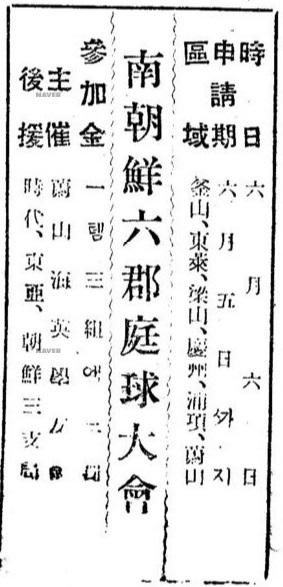 時日 六月六日
申請期 六月五日ᄭᅡ지
區域 釜山、東萊、梁山、慶州、浦項、蔚山
南朝鮮六郡庭球大會
參加金 一템三組에
主催 蔚山海英學友會
後援 時代、東亞、朝鮮三支局
NAVER
NAVER